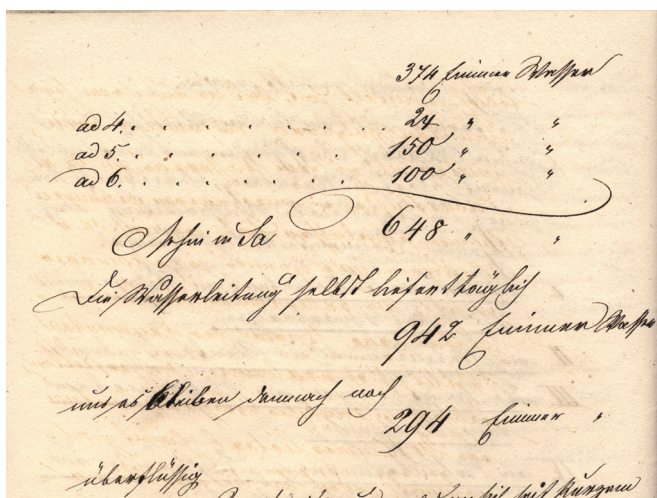 374 Eimmer Wasser
ad 4. . . . . . . . . . 24 " "
ad 5. . . . . . . . . . 150 " "
ad 6. . . . . . . . . . 100 " "
Mithin in Sa 648 " "
Die Wasserleitung selbst liefert täglich
942 Eimmer Wasser
und es bleiben demnach noch
294 Eimmer "
überflüssig
seit Kurzem